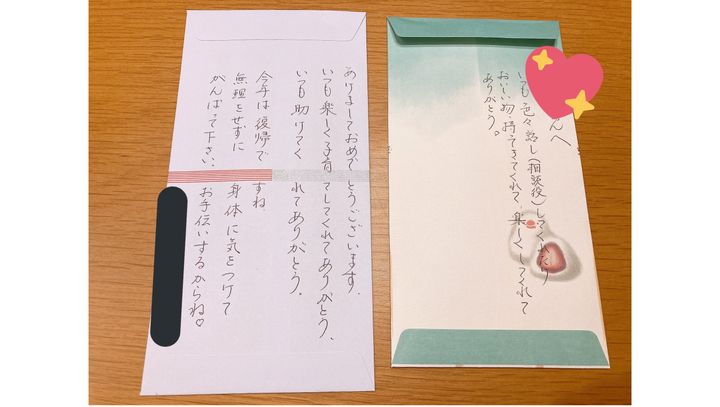 あけましておめでとうございます。
いつも楽しく子育てしてくれてありがとう。
いつも助けてくれてありがとう。
今年は復帰ですね。
無理をせずに身体に気をつけて
がんばって下さい。お手伝いするからね♡
んへ
いつも色々話し(相談役)してくれたり
おいしい物、持ってきてくれて、楽しくしてくれて
ありがとう。